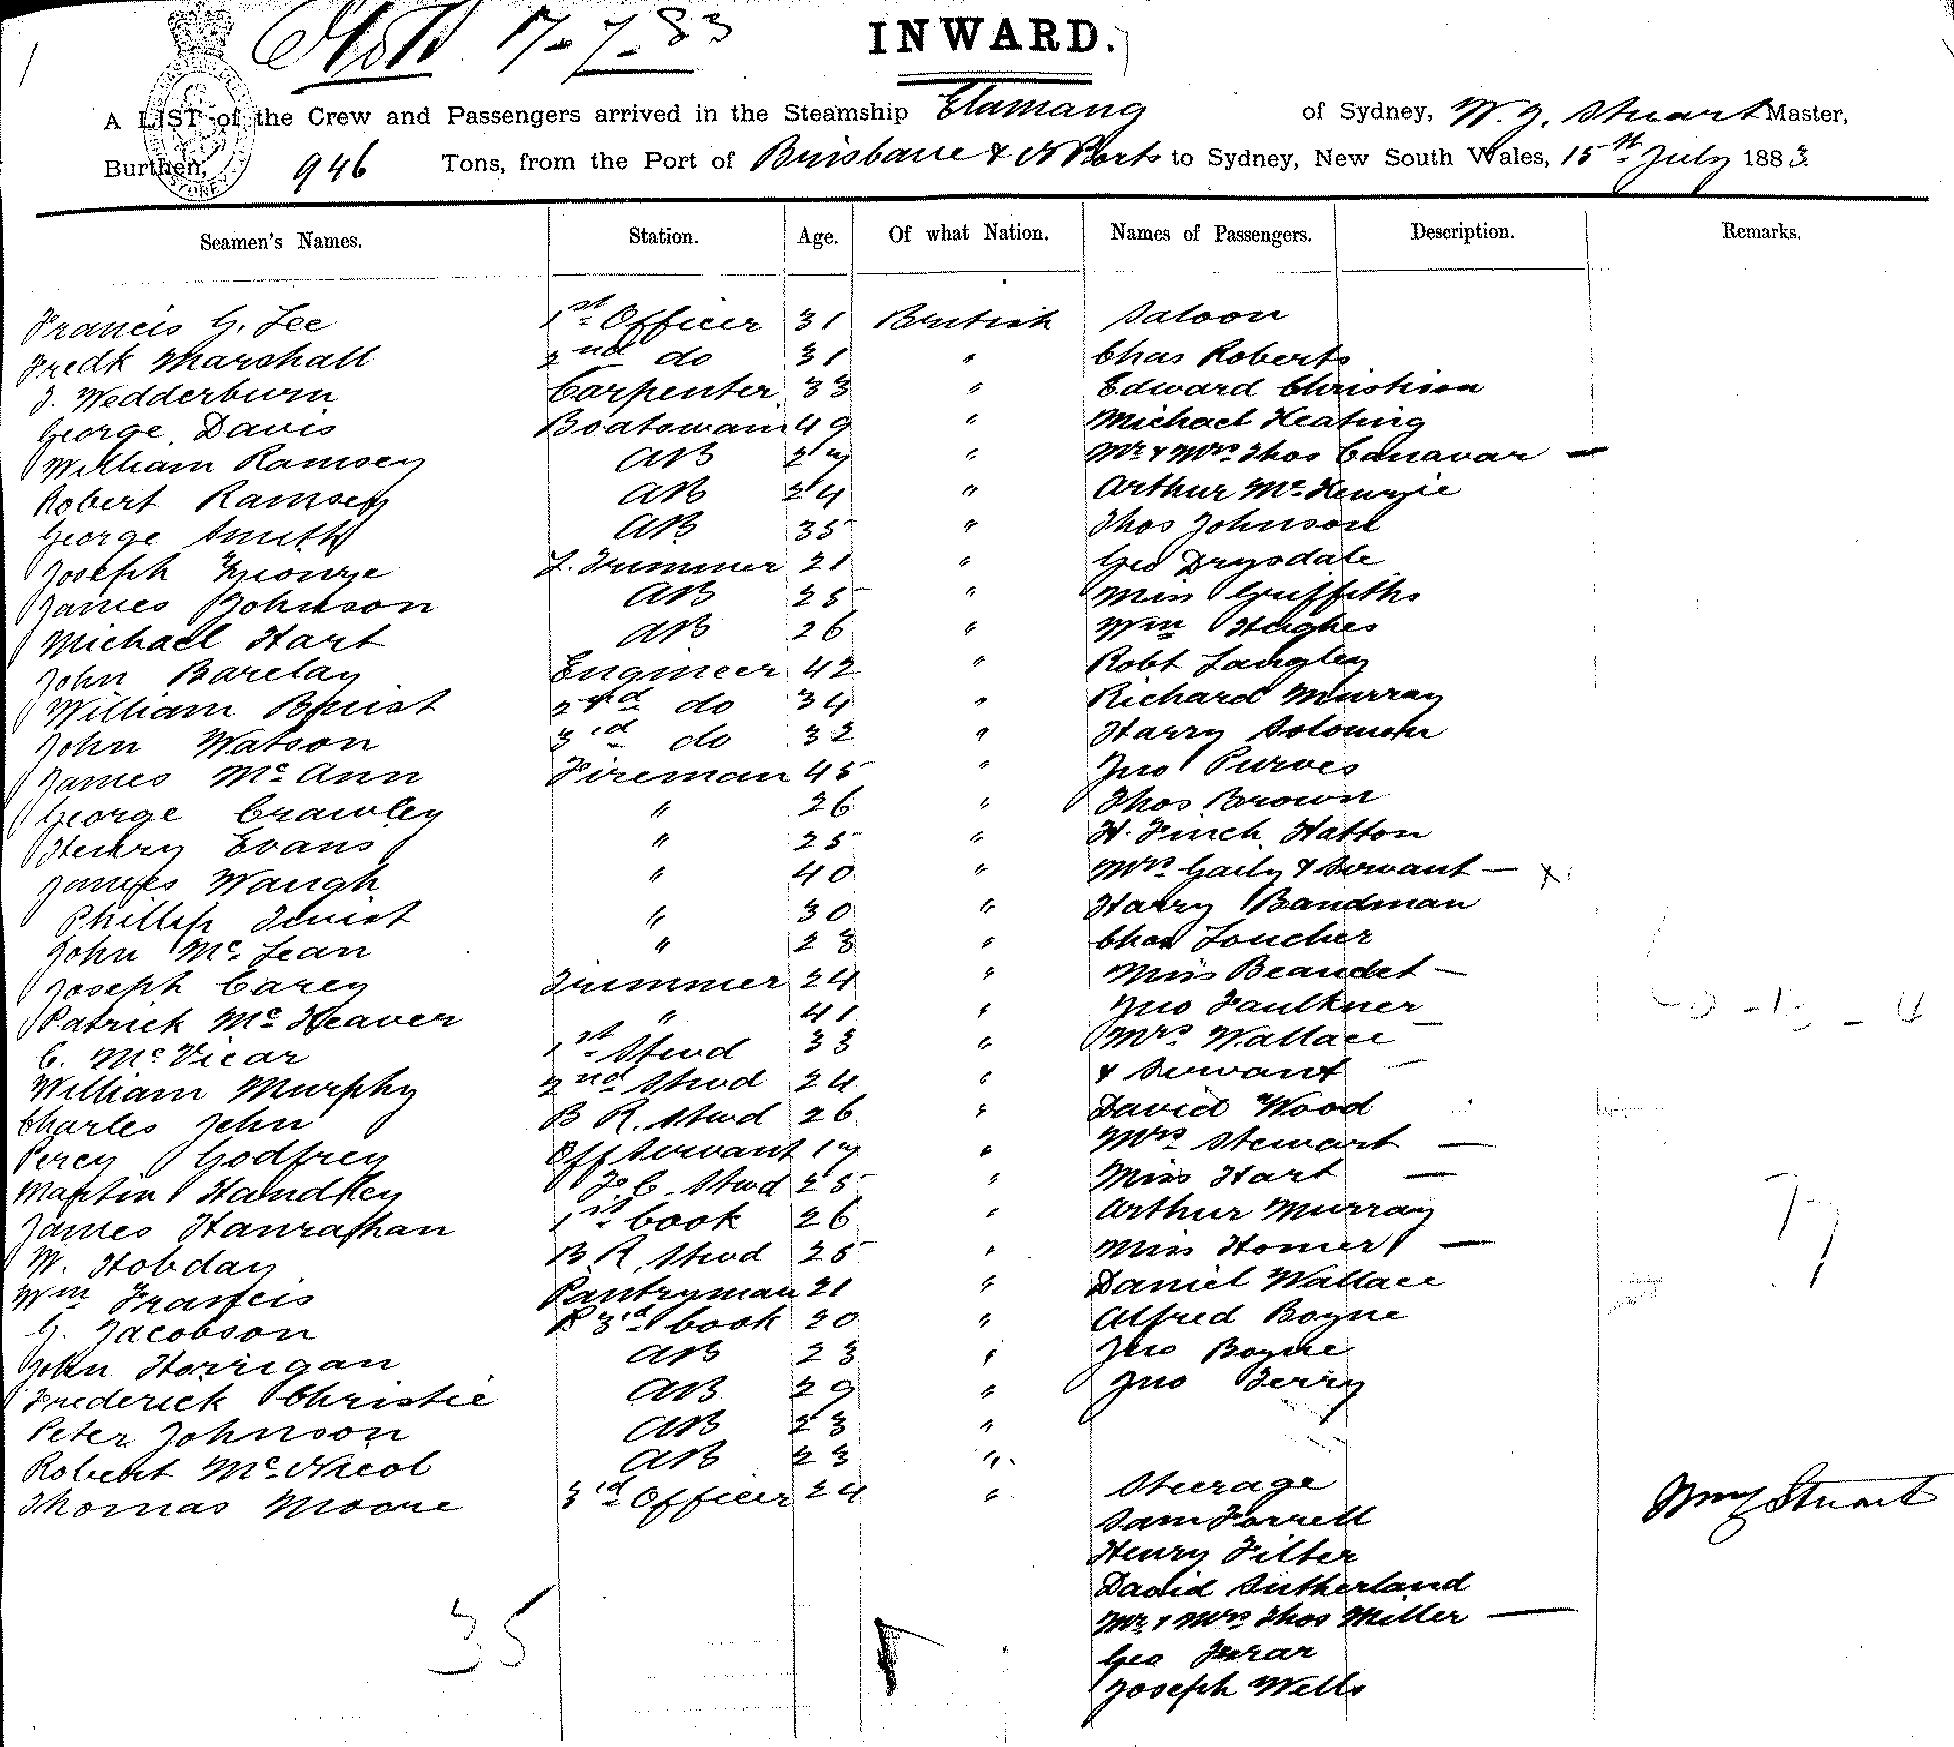 17-7-83
INWARD.
A LIST of the Crew and Passengers arrived in the Steamship Elamang of Sydney, W. G. Stuart Master,
Burthen, 946 Tons, from the Port of Brisbane & N Ports to Sydney, New South Wales, 15th July 1883
Seamen's Names. Station. Age. Of what Nation. Names of Passengers. Description. Remarks.
Francis G. Lee 1st Officer 31 British Saloon
Fredk Marshall 2nd do 31 " Chas Roberts
J. Wedderburn Carpenter 33 " Edward Christison
George Davis Boatswain 49 " Michael Keating
William Ramsey AB 27 " Mr & Mrs Thos Canavar —
Robert Ramsey AB 24 " Arthur McKenzie
George Smith AB 35 " Thos Johnson
Joseph 21 " Geo Drysdale
James Johnson AB 25 " Miss Griffiths
Michael Hart AB 26 " Wm Hughes
John Barclay Engineer 42 " Robt Langley
William Buist 2nd do 34 " Richard Murray
John Watson 3rd do 32 " Harry Solomon
James McAnn Fireman 45 " Jno Purves
George Crawley " 26 " Thos Brown
Henry Evans " 25 " H. Finch Hatton
James Waugh " 40 " Mrs Gaily & Servant — x
Phillip " 30 " Harry Bandman
John McLean " 23 " Chas Loucher
Joseph Carey Trimmer 24 " Miss Beaudet —
Patrick McKeaver " 41 " Jno Faulkner
C. McVicar 1st Stwd 33 " Mrs Wallace —
William Murphy 2nd Stwd 24 " & Servant —
Charles John B R. Stwd 26 " David Wood
Percy Godfrey Off Servant 17 " Mrs Stewart —
Martin Handley F. C. Stwd 25 " Miss Hart —
James Hanrahan 1st Cook 26 " Arthur Murray
W. Hobday B R. Stwd 25 " Miss Homer —
Wm Francis Pantryman 21 " Daniel Wallace
G. Jacobson 3rd Cook 20 " Alfred Boyne
John Horrigan AB 23 " Jno Boyne
Frederick Christie AB 29 " Jno Berry
Peter Johnson AB 23 "
Robert McNicol AB 23 "
Thomas Moore 3rd Officer 24 " Steerage
Wm G Stuart
Sam Forrell
Henry Filter
David Sutherland
Mr & Mrs Thos Miller —
35
Geo Farrar
Joseph Wells